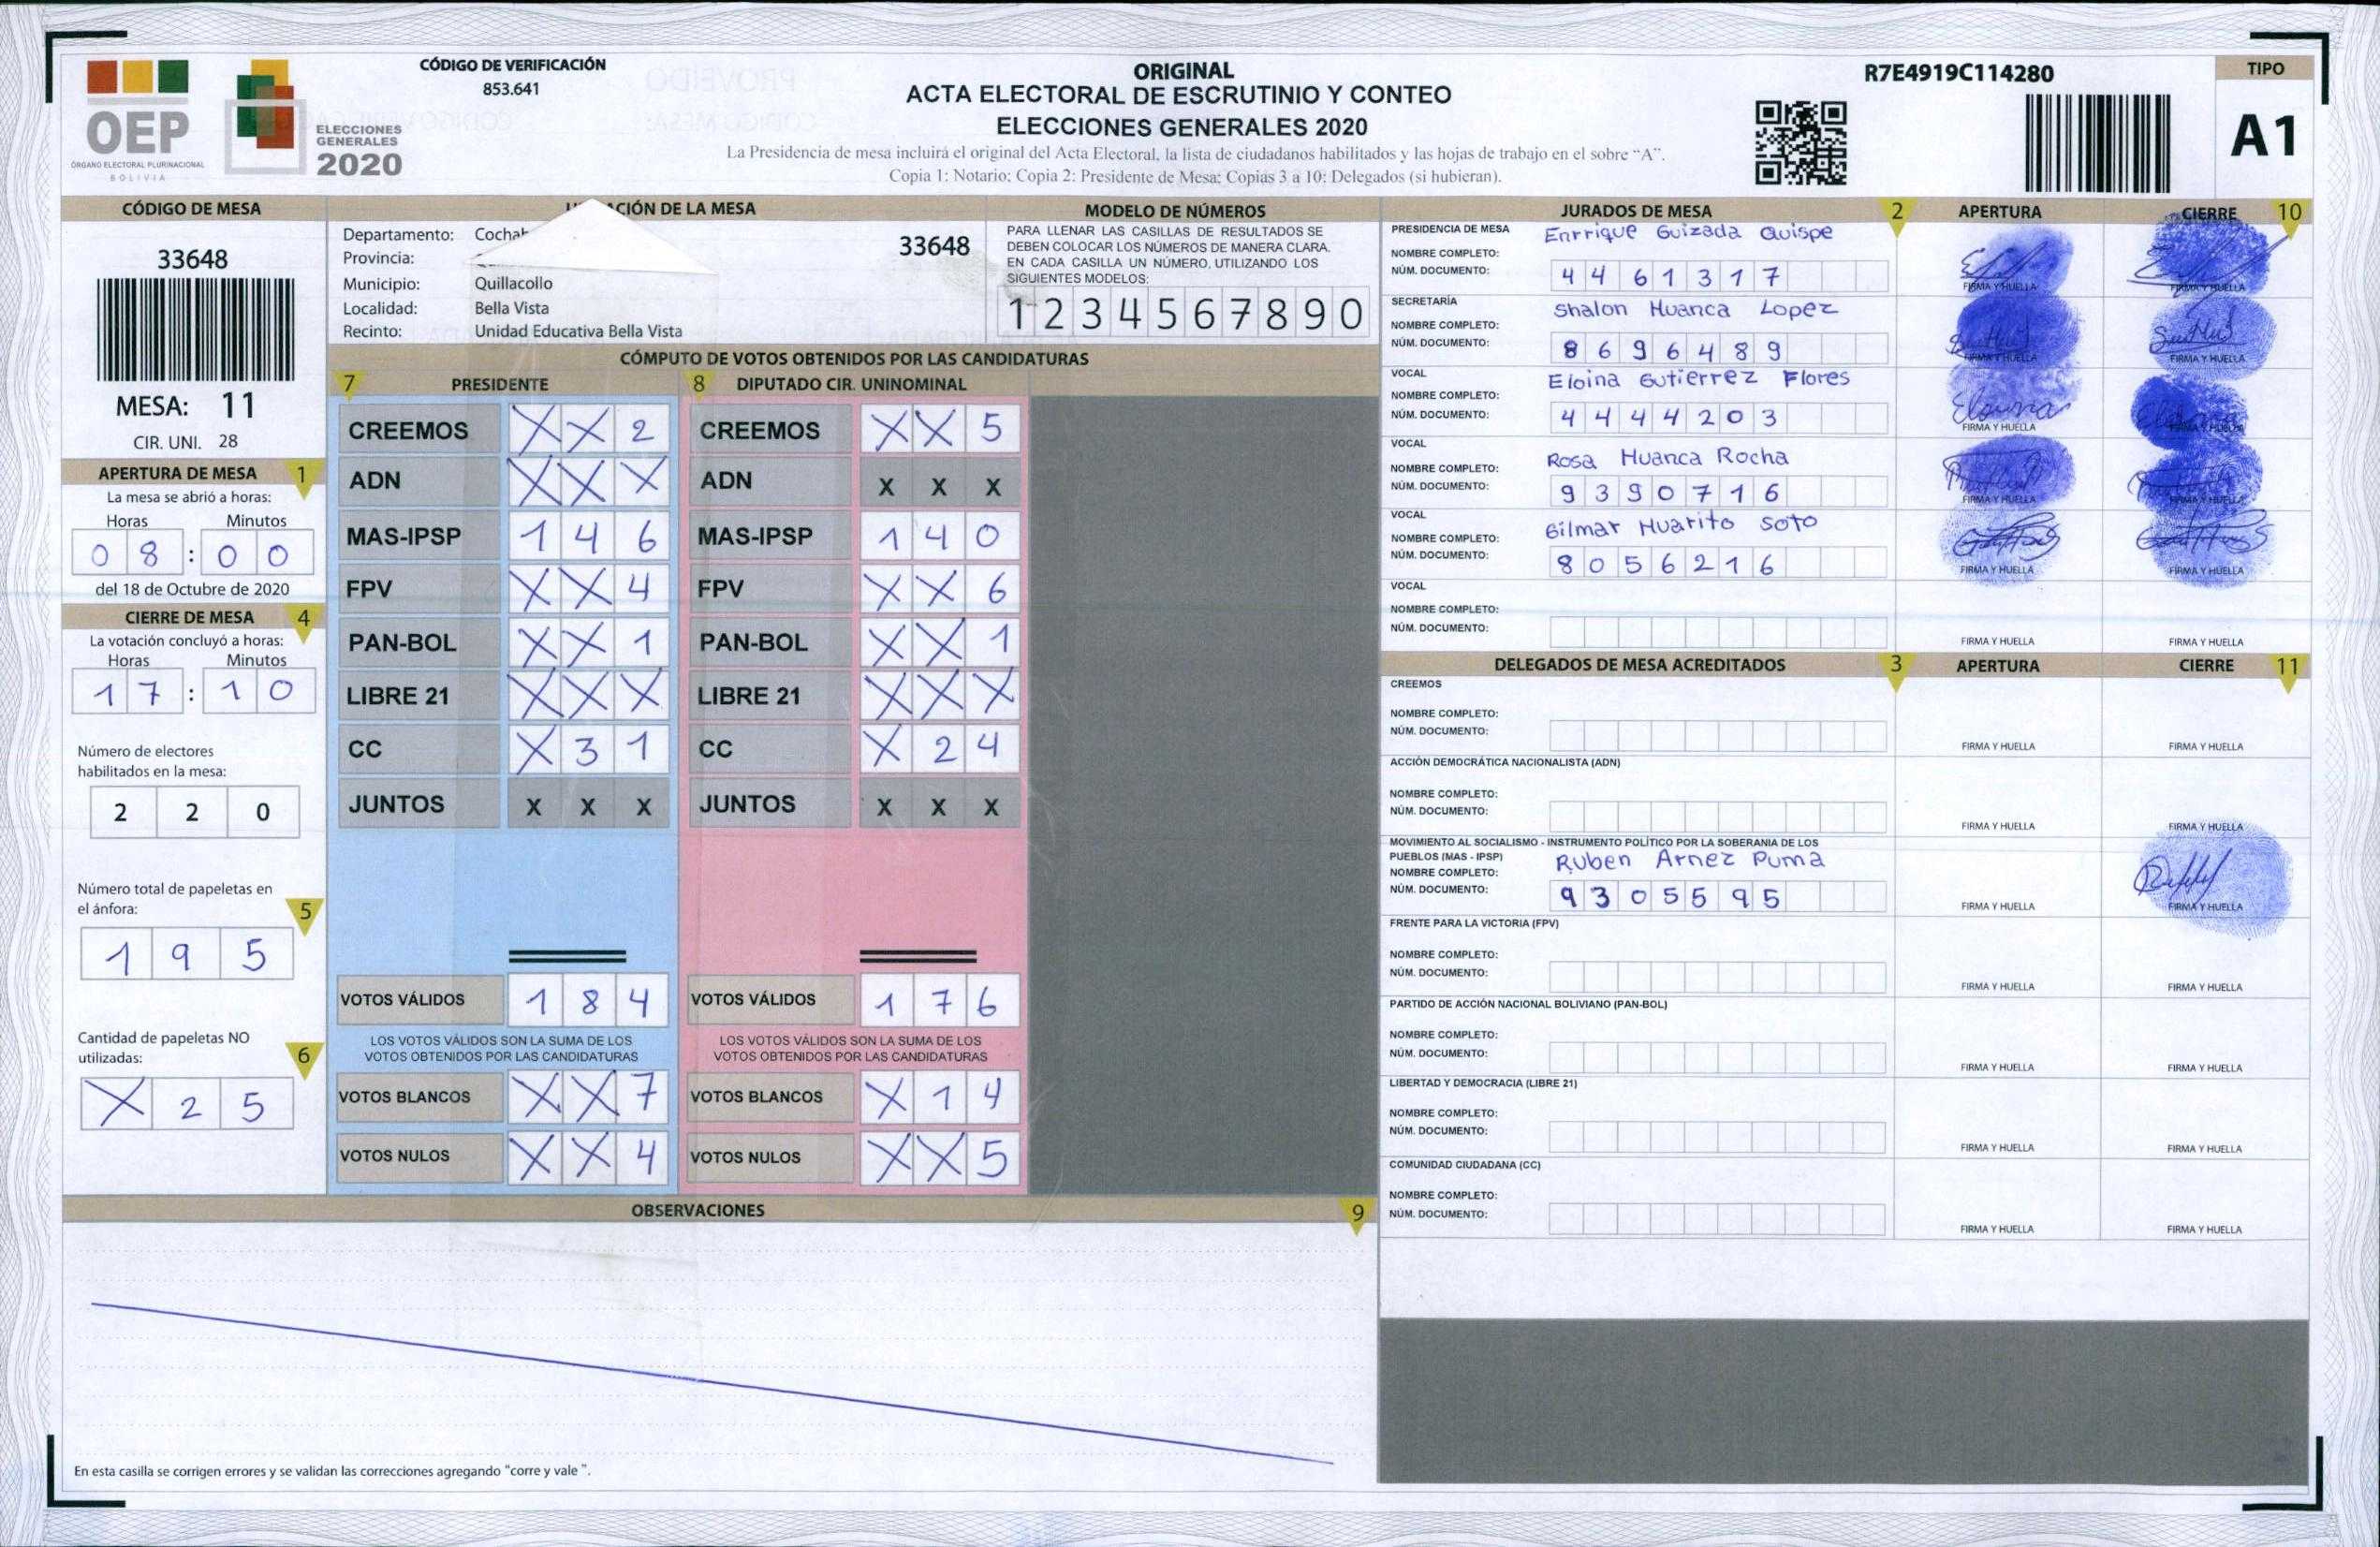 OEP
ÓRGANO ELECTORAL PLURINACIONAL
BOLIVIA
ELECCIONES
GENERALES
2020
CÓDIGO DE VERIFICACIÓN
853.641
ORIGINAL
ACTA ELECTORAL DE ESCRUTINIO Y CONTEO
ELECCIONES GENERALES 2020
La Presidencia de mesa incluirá el original del Acta Electoral, la lista de ciudadanos habilitados y las hojas de trabajo en el sobre “A”.
Copia 1: Notario; Copia 2: Presidente de Mesa; Copias 3 a 10: Delegados (si hubieran).
R7E4919C114280
TIPO
A1
CÓDIGO DE MESA
33648
MESA: 11
CIR. UNI. 28
APERTURA DE MESA 1
La mesa se abrió a horas:
Horas Minutos
0 8 : 0 0
del 18 de Octubre de 2020
CIERRE DE MESA 4
La votación concluyó a horas:
Horas Minutos
1 7 : 1 0
Número de electores
habilitados en la mesa:
2 2 0
Número total de papeletas en
el ánfora: 5
1 9 5
Cantidad de papeletas NO
utilizadas: 6
X 2 5
CIÓN DE LA MESA
Departamento: Cochab
Provincia:
Municipio: Quillacollo
Localidad: Bella Vista
Recinto: Unidad Educativa Bella Vista
33648
MODELO DE NÚMEROS
PARA LLENAR LAS CASILLAS DE RESULTADOS SE
DEBEN COLOCAR LOS NÚMEROS DE MANERA CLARA.
EN CADA CASILLA UN NÚMERO, UTILIZANDO LOS
SIGUIENTES MODELOS:
1 2 3 4 5 6 7 8 9 0
CÓMPUTO DE VOTOS OBTENIDOS POR LAS CANDIDATURAS
7 PRESIDENTE
CREEMOS X X 2
ADN X X X
MAS-IPSP 1 4 6
FPV X X 4
PAN-BOL X X 1
LIBRE 21 X X X
CC X 3 1
JUNTOS X X X
VOTOS VÁLIDOS 1 8 4
LOS VOTOS VÁLIDOS SON LA SUMA DE LOS
VOTOS OBTENIDOS POR LAS CANDIDATURAS
VOTOS BLANCOS X X 7
VOTOS NULOS X X 4
8 DIPUTADO CIR. UNINOMINAL
CREEMOS X X 5
ADN X X X
MAS-IPSP 1 4 0
FPV X X 6
PAN-BOL X X 1
LIBRE 21 X X X
CC X 2 4
JUNTOS X X X
VOTOS VÁLIDOS 1 7 6
LOS VOTOS VÁLIDOS SON LA SUMA DE LOS
VOTOS OBTENIDOS POR LAS CANDIDATURAS
VOTOS BLANCOS X 1 4
VOTOS NULOS X X 5
OBSERVACIONES 9
En esta casilla se corrigen errores y se validan las correcciones agregando "corre y vale ".
JURADOS DE MESA 2 APERTURA CIERRE 10
PRESIDENCIA DE MESA Enrrique Guizada Quispe
NOMBRE COMPLETO:
NÚM. DOCUMENTO: 4 4 6 1 3 1 7
FIRMA Y HUELLA FIRMA Y HUELLA
SECRETARÍA Shalon Huanca Lopez
NOMBRE COMPLETO:
NÚM. DOCUMENTO: 8 6 9 6 4 8 9
FIRMA Y HUELLA FIRMA Y HUELLA
VOCAL Eloina Gutierrez Flores
NOMBRE COMPLETO:
NÚM. DOCUMENTO: 4 4 4 4 2 0 3
FIRMA Y HUELLA FIRMA Y HUELLA
VOCAL Rosa Huanca Rocha
NOMBRE COMPLETO:
NÚM. DOCUMENTO: 9 3 9 0 7 1 6
FIRMA Y HUELLA FIRMA Y HUELLA
VOCAL Gilmar Huarito Soto
NOMBRE COMPLETO:
NÚM. DOCUMENTO: 8 0 5 6 2 1 6
FIRMA Y HUELLA FIRMA Y HUELLA
VOCAL
NOMBRE COMPLETO:
NÚM. DOCUMENTO:
FIRMA Y HUELLA FIRMA Y HUELLA
DELEGADOS DE MESA ACREDITADOS 3 APERTURA CIERRE 11
CREEMOS
NOMBRE COMPLETO:
NÚM. DOCUMENTO:
FIRMA Y HUELLA FIRMA Y HUELLA
ACCIÓN DEMOCRÁTICA NACIONALISTA (ADN)
NOMBRE COMPLETO:
NÚM. DOCUMENTO:
FIRMA Y HUELLA FIRMA Y HUELLA
MOVIMIENTO AL SOCIALISMO - INSTRUMENTO POLÍTICO POR LA SOBERANIA DE LOS
PUEBLOS (MAS - IPSP) Ruben Arnez Puma
NOMBRE COMPLETO:
NÚM. DOCUMENTO: 9 3 0 5 5 9 5
FIRMA Y HUELLA FIRMA Y HUELLA
FRENTE PARA LA VICTORIA (FPV)
NOMBRE COMPLETO:
NÚM. DOCUMENTO:
FIRMA Y HUELLA FIRMA Y HUELLA
PARTIDO DE ACCIÓN NACIONAL BOLIVIANO (PAN-BOL)
NOMBRE COMPLETO:
NÚM. DOCUMENTO:
FIRMA Y HUELLA FIRMA Y HUELLA
LIBERTAD Y DEMOCRACIA (LIBRE 21)
NOMBRE COMPLETO:
NÚM. DOCUMENTO:
FIRMA Y HUELLA FIRMA Y HUELLA
COMUNIDAD CIUDADANA (CC)
NOMBRE COMPLETO:
NÚM. DOCUMENTO:
FIRMA Y HUELLA FIRMA Y HUELLA